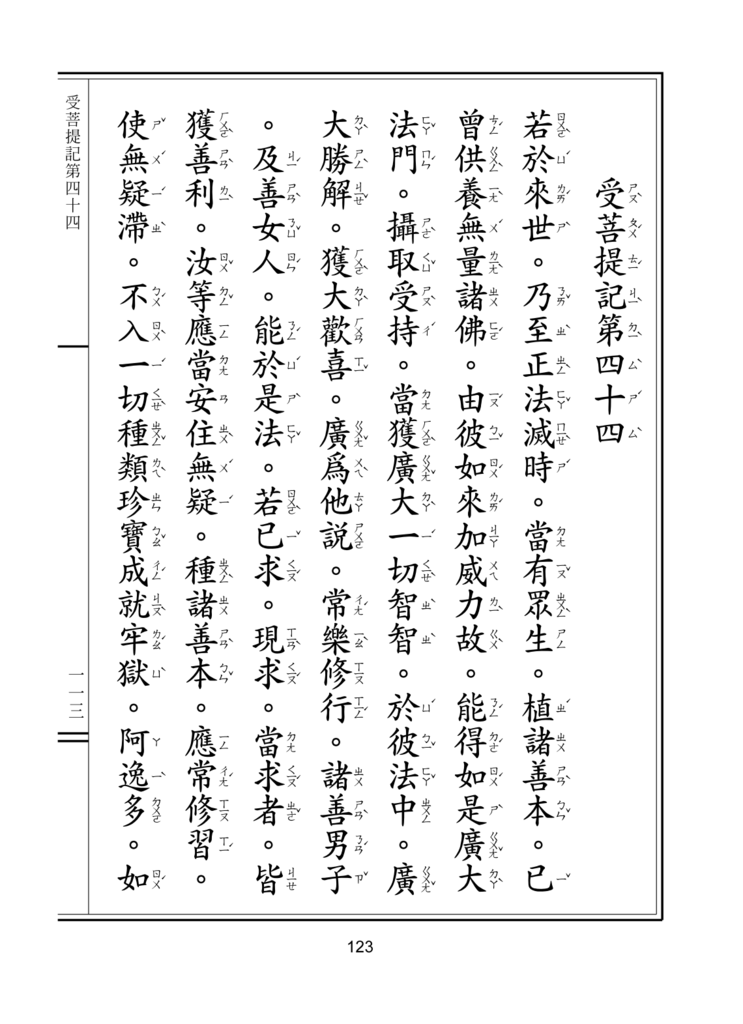 受菩提記第四十四
若於來世。乃至正法滅時。當有眾生。植諸善本。已
曾供養無量諸佛。由彼如來加威力故。能得如是廣大
法門。攝取受持。當獲廣大一切智智。於彼法中。廣
大勝解。獲大歡喜。廣為他說。常樂修行。諸善男子
。及善女人。能於是法。若已求。現求。當求者。皆
獲善利。汝等應當安住無疑。種諸善本。應常修習。
使無疑滯。不入一切種類珍寶成就牢獄。阿逸多。如
受菩提記第四十四
一一三
123